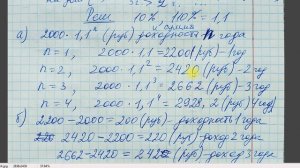 Реш 10%, 110% = 1,1
а) 2000·1,1ⁿ (руб) доходность n года
n=1, 2000·1,1=2200 (руб) - 1 год
n=2, 2000·1,1²=2420 (руб) - 2 год
n=3, 2000·1,1³=2662 (руб) - 3 год
n=4, 2000·1,1⁴=2928,2 (руб) 4 год
б) 2200-2000=200 (руб) - доходность 1 года
2420-2200=220 (руб) - доход 2 года
2662-2420=242 (руб) 3 года